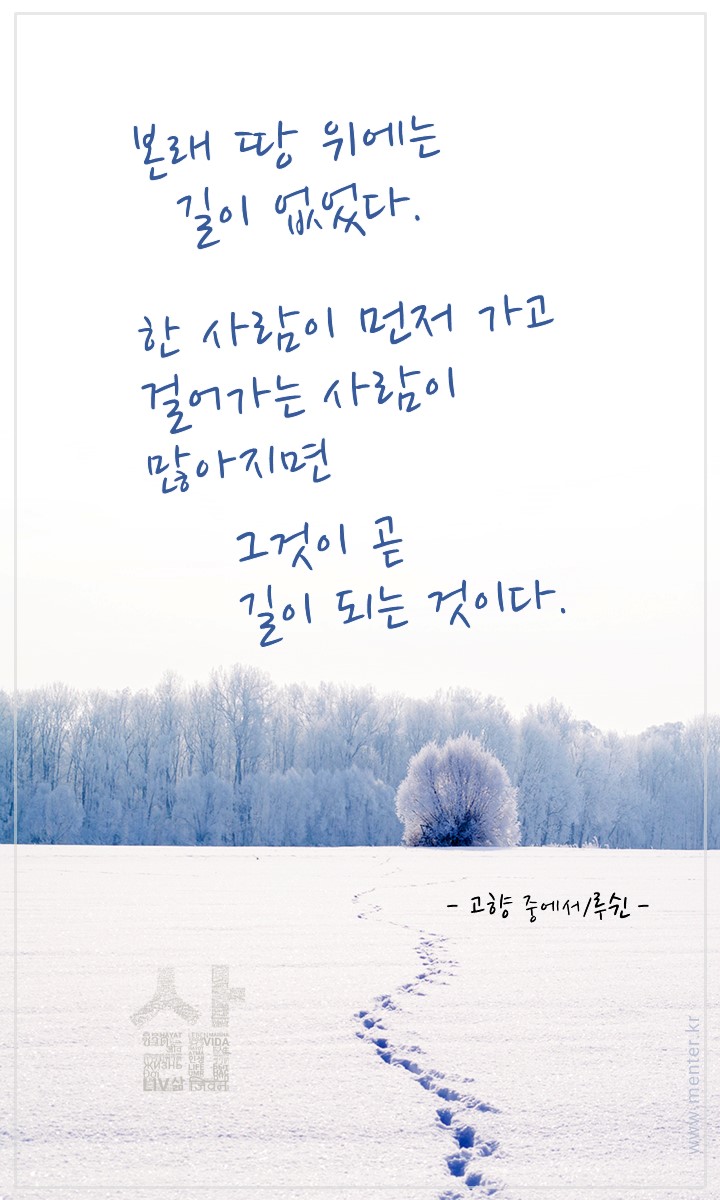 본래 땅 위에는
길이 없었다.
한 사람이 먼저 가고
걸어가는 사람이
많아지면
그것이 곧
길이 되는 것이다.
- 고향 중에서/루쉰 -
삶
VIDA
жизнь
LIFE
LIV삶
www.menter.kr